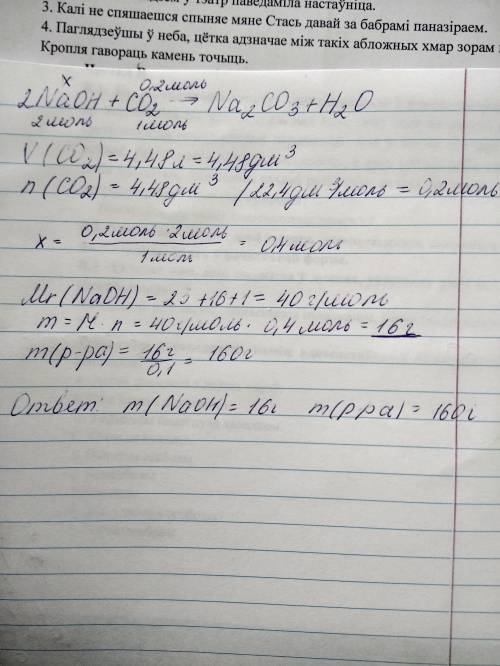 тэатр паведаміла настаўніца.
3. Калі не спяшаешся спыне мяне Стась давай за бабрамі паназіраем.
4. Паглядзеўшы ў неба, цётка адзначае між такіх абложных хмар зорам
Кропля гавораць камень точыць.
x 0,2моль
2NaOH + CO2 → Na2CO3 + H2O
2моль 1моль
V(CO2) = 4,48л = 4,48дм³
n(CO2) = 4,48дм³ / 22,4дм³/моль = 0,2моль
x = 0,2моль · 2моль / 1моль = 0,4моль
Mr(NaOH) = 23 + 16 + 1 = 40 г/моль
m = M · n = 40г/моль · 0,4 моль = 16г
m(р-ра) = 16г / 0,1 = 160г
Ответ: m(NaOH) = 16г m(р ра) = 160г